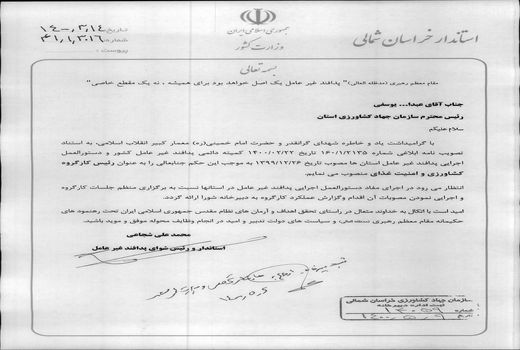 جمهوری اسلامی ایران
وزارت کشور
استاندار خراسان شمالی
تاریخ
شماره
پیوست:
بسمه تعالی
مقام معظم رهبری (مدظله العالی)" پدافند غیر عامل یک اصل خواهد بود برای همیشه ، نه یک مقطع خاصی"
جناب آقای عبدا... یوسفی
رئیس محترم سازمان جهاد کشاورزی استان
سلام علیکم
با گرامیداشت یاد و خاطره شهدای گرانقدر و حضرت امام خمینی(ره) معمار کبیر انقلاب اسلامی، به استناد
تصویب نامه ابلاغی شماره ۱۶۰/۱/۲۱۳۵ تاریخ ۱۴۰۰/۰۲/۲۲ کمیته دائمی پدافند غیر عامل کشور و دستورالعمل
اجرایی پدافند غیر عامل استان ها مصوب تاریخ ۱۳۹۹/۱۲/۲۶ به موجب این حکم جنابعالی را به عنوان رئیس کارگروه
کشاورزی و امنیت غذای منصوب می نمایم.
انتظار می رود در اجرای مفاد دستورالعمل اجرایی پدافند غیر عامل در استانها نسبت به برگزاری منظم جلسات کارگروه
و اجرایی نمودن مصوبات آن اقدام وگزارش عملکرد کارگروه به دبیرخانه شورا ارائه گردد.
امید است با اتکال به خداوند متعال در راستای تحقق اهداف و آرمان های نظام مقدس جمهوری اسلامی ایران تحت رهنمود های
حکیمانه مقام معظم رهبری و سیاست های دولت تدبیر و امید در انجام وظایف محوله موفق و موید باشید.
محمد علی شجاعی
استاندار و رئیس شورای پدافند غیر عامل
سازمان جهاد کشاورزی خراسان شمالی
ثبت اداره دبیرخانه
شماره ۱۳۰۵۹